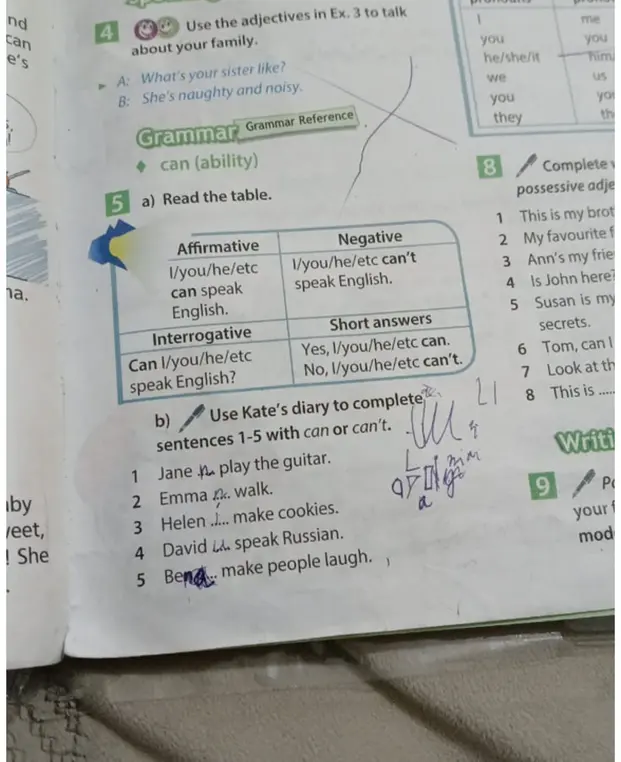 nd
can
e's
4 Use the adjectives in Ex. 3 to talk
about your family.
A: What's your sister like?
B: She's naughty and noisy.
Grammar Grammar Reference
can (ability)
5 a) Read the table.
Affirmative
I/you/he/etc
can speak
English.
Negative
I/you/he/etc can't
speak English.
Interrogative
Can I/you/he/etc
speak English?
Short answers
Yes, I/you/he/etc can.
No, I/you/he/etc can't.
b) Use Kate's diary to complete
sentences 1-5 with can or can't.
1 Jane play the guitar.
2 Emma walk.
3 Helen ..... make cookies.
4 David speak Russian.
5 Ben make people laugh.
na.
by
veet,
! She
I me
you you
he/she/it him
we us
you yo
they th
8 Complete
possessive adje
1 This is my brot
2 My favourite f
3 Ann's my frie
4 Is John here?
5 Susan is my
secrets.
6 Tom, can I
7 Look at th
8 This is .....
Writi
9 Po
your f
mod